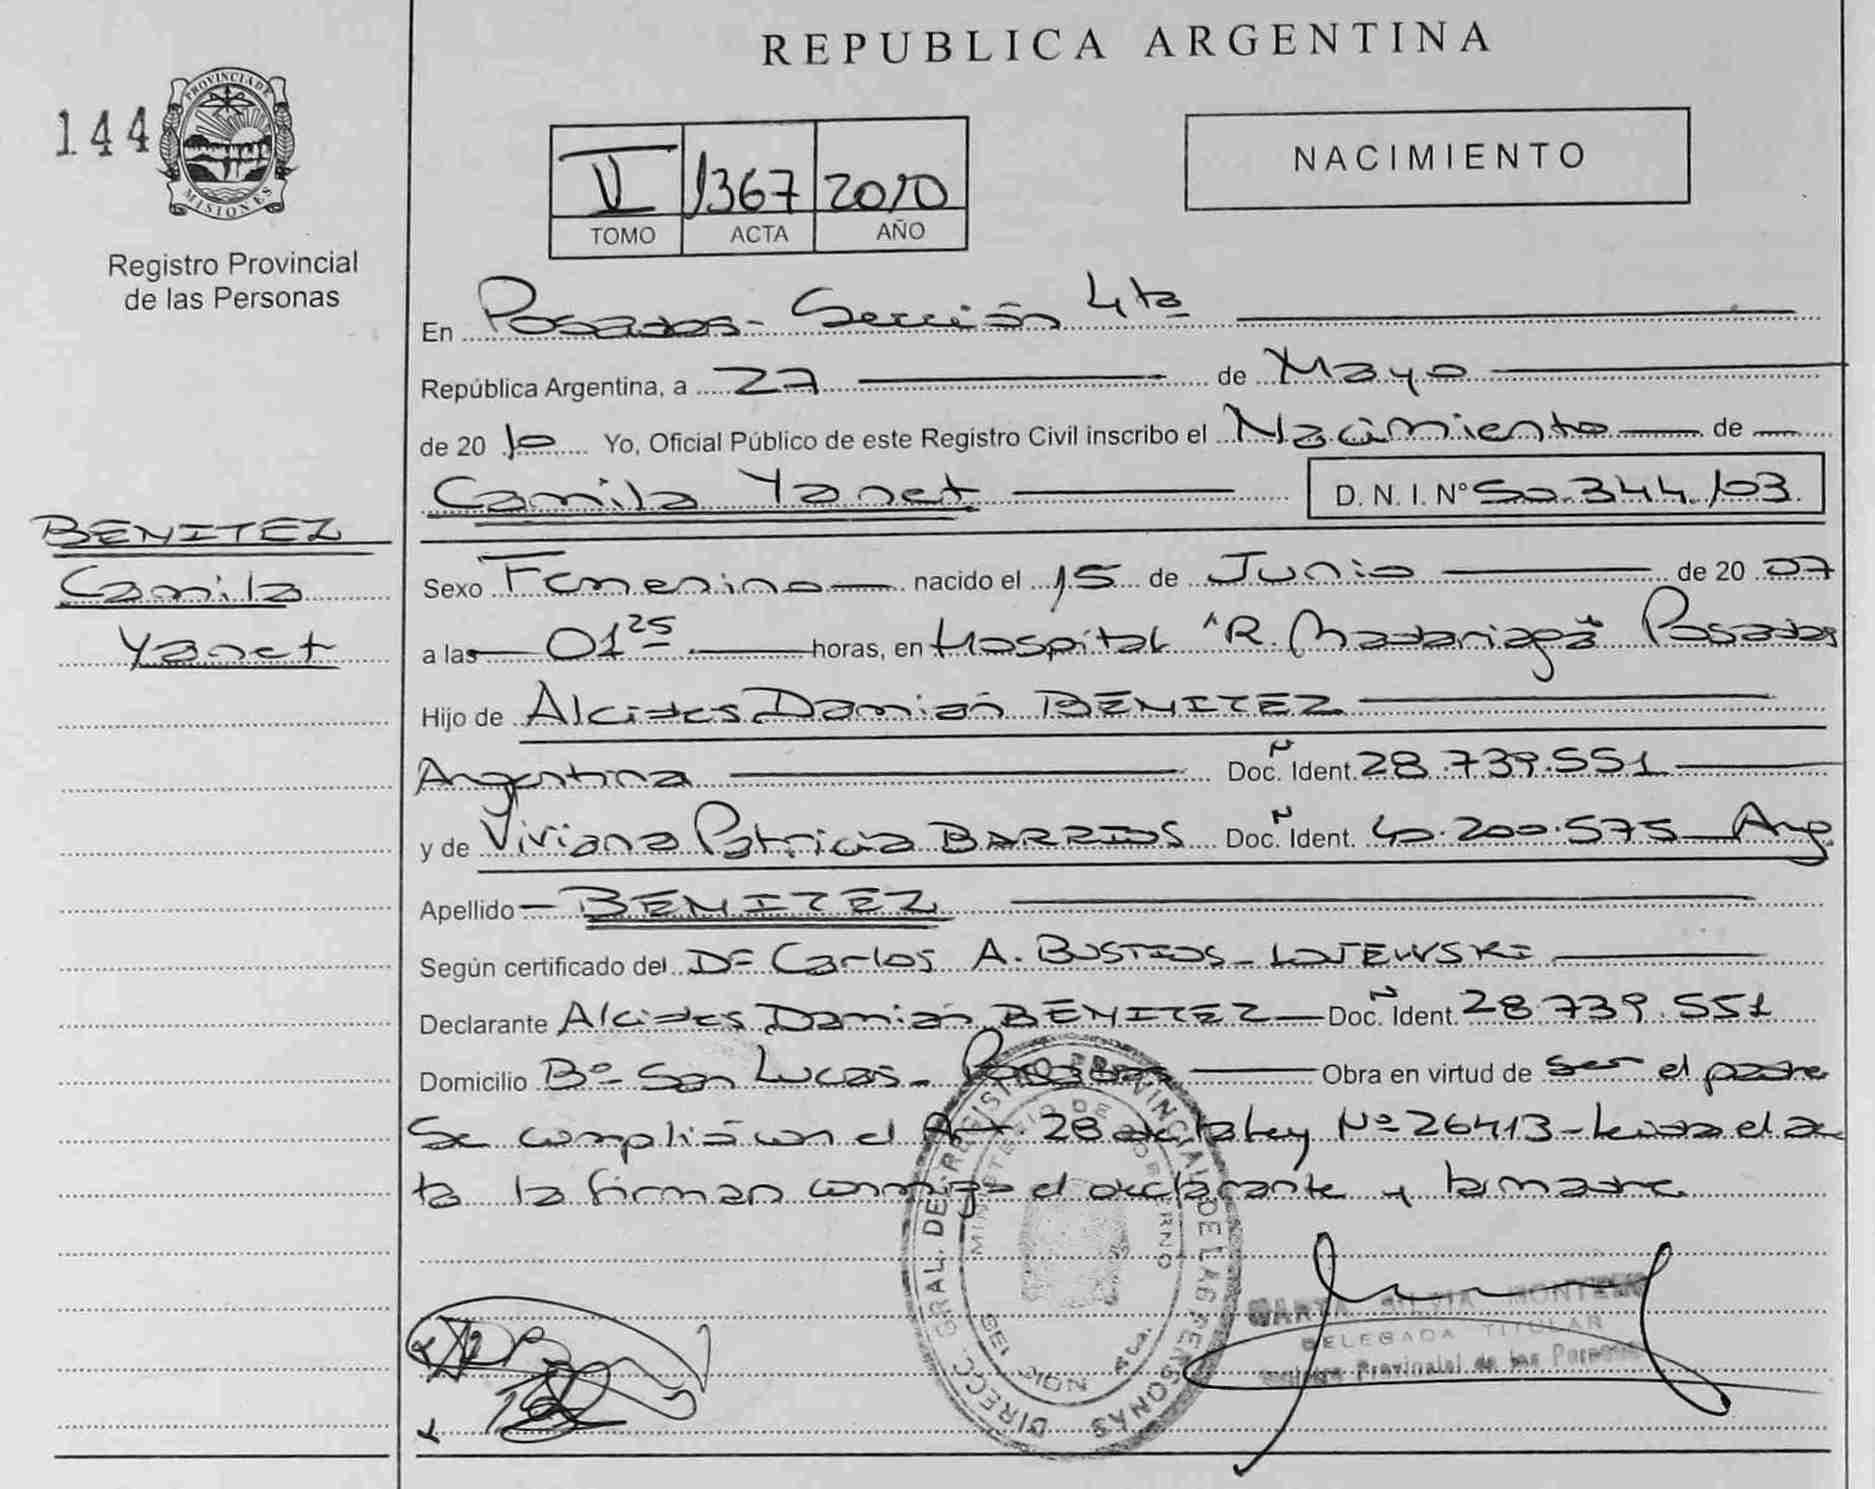 REPUBLICA ARGENTINA
144
PROVINCIA DE MISIONES
Registro Provincial
de las Personas
V 1367 2010
TOMO ACTA AÑO
NACIMIENTO
En Posadas - Sección 4ta
República Argentina, a 27 de Mayo
de 2010 Yo, Oficial Público de este Registro Civil inscribo el Nacimiento de
Camila Yanet D. N. I. Nº 50.344.103
BENITEZ
Camila
Yanet
Sexo Femenino nacido el 15 de Junio de 2007
a las 01 25 horas, en Hospital "R. Madariaga" Posadas
Hijo de Alcides Damián BENITEZ
Argentina Doc. Ñ Ident. 28.739.551
y de Viviana Patricia BARRIOS Doc. Ñ Ident. 40.200.575 Arg
Apellido BENITEZ
Según certificado del Dr Carlos A. BUSTOS -
Declarante Alcides Damián BENITEZ Doc. Ñ Ident. 28.739.551
Domicilio Bº San Lucas - Posadas Obra en virtud de ser el padre
Se complió con el Art 28 de la Ley Nº 26413 - Leida el ac
ta la firman conmigo el declarante y la madre
DIRECC. GRAL. DEL REGISTRO PROVINCIAL DE LAS PERSONAS
MINISTERIO DE GOBIERNO
SECCION 4ta.
MARTA SILVIA MONTERO
DELEGADA TITULAR
Registro Provincial de las Personas